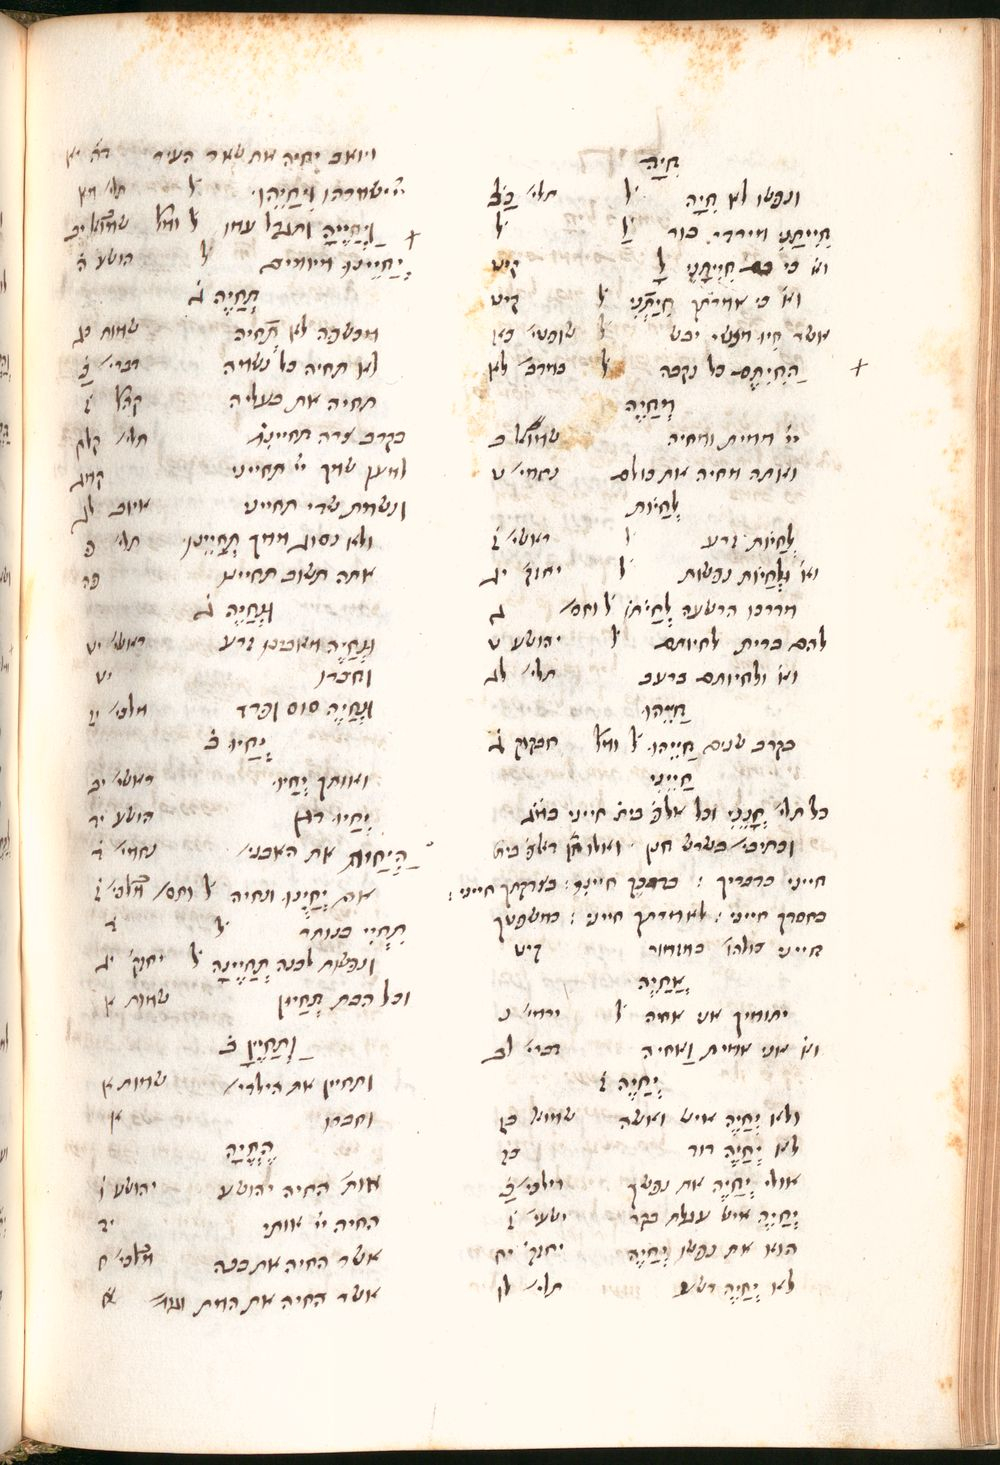 חִיָּה
ונפשו לא חִיָּה ל תלי׳ כב
חִיִּיתַנִי מיורדי בור ל ל
וא׳ כי בם חִיִּיתָנִי ל קיט
וא׳ כי אמרתך חִיָּתְנִי ל קיט
אשר חיו מנשי יבש ל שופטי׳ כא
הַחִיִּיתֶם כל נקבה ל במדב׳ לא
מְחַיֶּה
יי׳ ממית ומחיה שמוא׳ ב
ואתה מחיה את כולם נחמי׳ ט
לְחַיּוֹת
לְחַיּוֹת זרע ל ראשי׳ ז
וא׳ וּלְחַיּוֹת נפשות ל יחזק׳ יג
מדרכו הרשעה לְחַיֹּתוֹ ל וחס׳ ג
להם ברית לחיותם ל יהושע ט
וא׳ ולחיותם ברעב תלי׳ לג
חַיֵּיהוּ
בקרב שנים חַיֵּיהוּ ל ומל׳ חבקוק ג
חַיֵּינִי
כל תלי׳ חָנֵּנִי וכל אלפ׳ בית חייני במ׳׳ג
חייני כדבריך : בדרכך חייני : בצדקתך חייני :
כחסדך חייני : לאמרתך חייני : כמשפטך
חייני כולהו׳ במזמור קיט
אֲחַיֶּה
יתומיך אני אחיה ל ירמי׳ נ
וא׳ אני אמית וַאחיה דברי׳ לב
יְחַיֶּה ז
ולא יְחַיֶּה איש ואשה שמוא׳ כז
לא יְחַיֶּה דוד כז
אולי יְחַיֶּה את נפשך דמלכי׳ כ
יְחַיֶּה איש עגלת בקר ישעי׳ ז
הוא את נפשו יְחַיֶּה יחזק׳ יח
לא יְחַיֶּה רשע תלי׳ לו
ויואב יחיה את שאר העיר דה׳ יא
יי׳ ישמרהו וִיחַיֵּהוּ ל תלי׳ מא
וַיְחַיֶּיהָ ותגדל עמו ל ומל׳ שמוא׳ יב
יְחַיֵּינוּ מיומים ל הושע ו
תְחַיֶּה ג
מכשפה לא תְחיה שמות כב
לא תחיה כל נשמה דברי׳ כ
תחיה את בעליה קהל׳ ז
בקרב צרה תחייני תלי׳ קלח
למען שמך יי׳ תחייני קמג
ונשמת שדי תחייני איוב לג
ולא נסוג ממך תְּחַיֵּינוּ תלי׳ פ
אתה תשוב תחיינו פה
וּנְחַיֶּה ג
וּנְחַיֶּה מאבינו זרע ראשי׳ יט
וחברו יט
וּנְחַיֶּה סוס ופרד מלכי׳ יח
יְחַיּוּ ב
ואותך יְחַיּוּ ראשי׳ יב
יְחַיּוּ דגן הושע יד
הַיְחַיּוּ את האבני׳ נחמי׳ ג
אם יְחַיֻּנוּ ונחיה ל וחס׳ מלכי׳ ז
ונפשות לכנה תְחַיֶּינָה ל יחזק׳ יג
וכל הבת תְּחַיּוּן שמות א
וַתְּחַיֶּיןָ ב
ותחיין את הילדי׳ שמות א
וחברו א
הֶחֱיָה
אות׳ החיה יהושע יהושע ו
החיה יי׳ אותי יד
אשר החיה את בנה מלכי׳ ח
אשר החיה את המת וגו׳